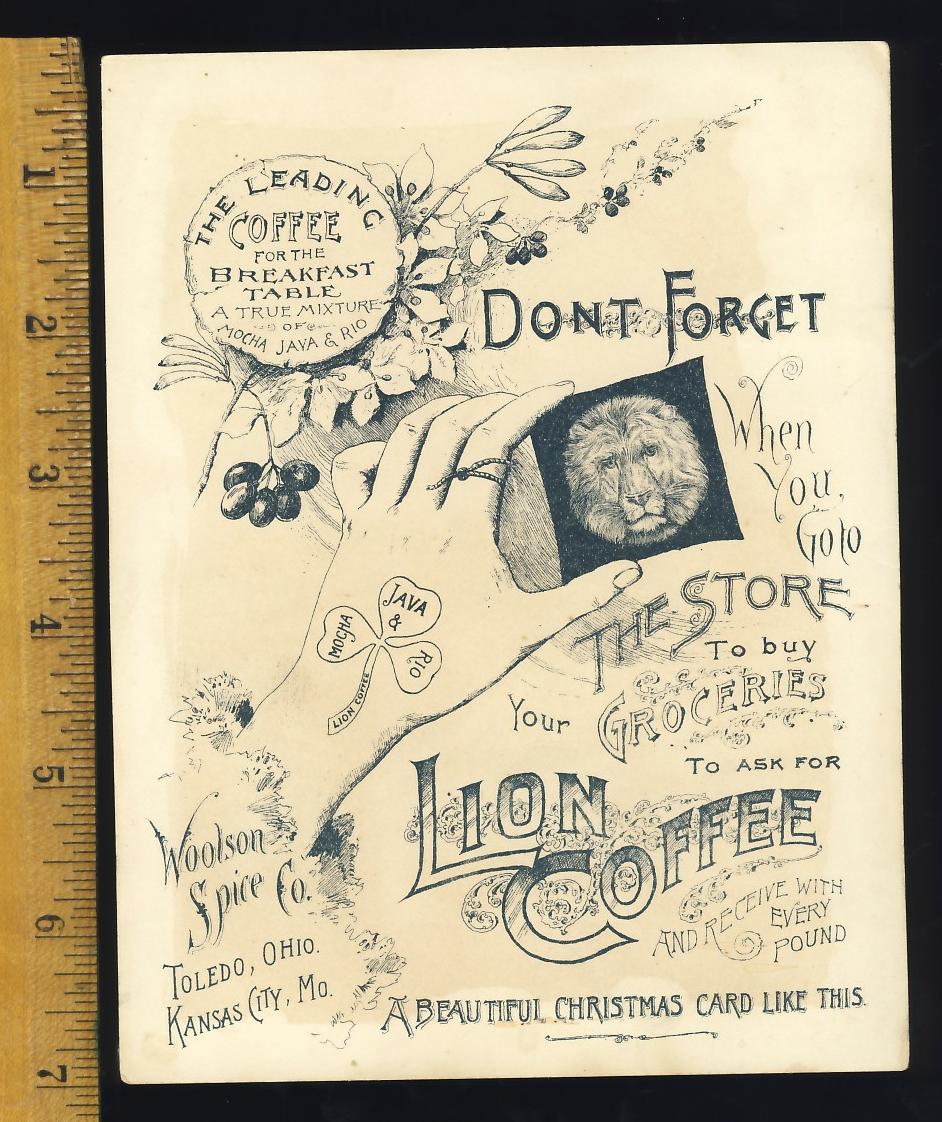 THE LEADING
COFFEE
FOR THE
BREAKFAST
TABLE
A TRUE MIXTURE
OF
MOCHA JAVA & RIO
DONT FORGET
When
You,
Goto
THE STORE
To buy
Your GROCERIES
TO ASK FOR
LION
COFFEE
AND RECEIVE WITH
EVERY
POUND
A BEAUTIFUL CHRISTMAS CARD LIKE THIS.
MOCHA
JAVA
&
RIO
LION COFFEE
Woolson
Spice Co.
TOLEDO, OHIO.
KANSAS CITY, MO.
1
2
3
4
5
6
7